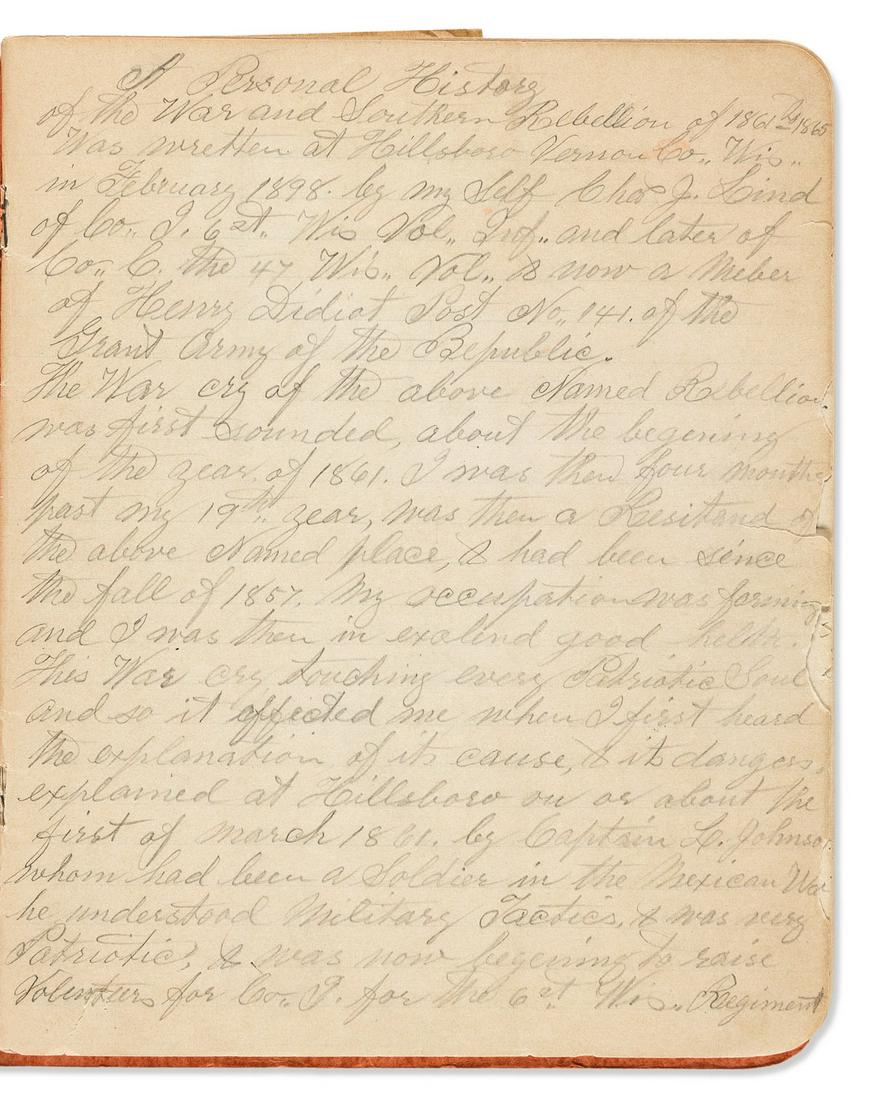 A Personal History
of the War and Southern Rebellion of 1861 to 1865
Was wretten at Hillsboro Vernon Co., Wis..
in February 1898. by my Self Chas J. Lind
of Co.. I. 6st.. Wis Vol.. Inf.. and later of
Co.. C. the 47, Wis.. Vol.. & now a Meber
of Henry Didiot Post No,, 141. of the
Grant Army of the Republic.
The War cry of the above Named Rebellion
was first sounded, about the begening
of the year of 1861. I was then four months
past my 19th.. year, was then a Resitand of
the above Named place, & had been since
the fall of 1857. My occupation was farming
and I was then in exelend good helth.
This War cry touching every Patriotic Soul
and so it effected me when I first heard
the explanation of its cause, & its dangers,
explained at Hillsboro on or about the
first of march 1861. by Captain L. Johnson
whom had been a Soldier in the Mexican War
he understood Military Tactics, & was very
Patriotic, & was now begening to raise
Volenteers for Co.. I. for the 6st Wis.. Regiment